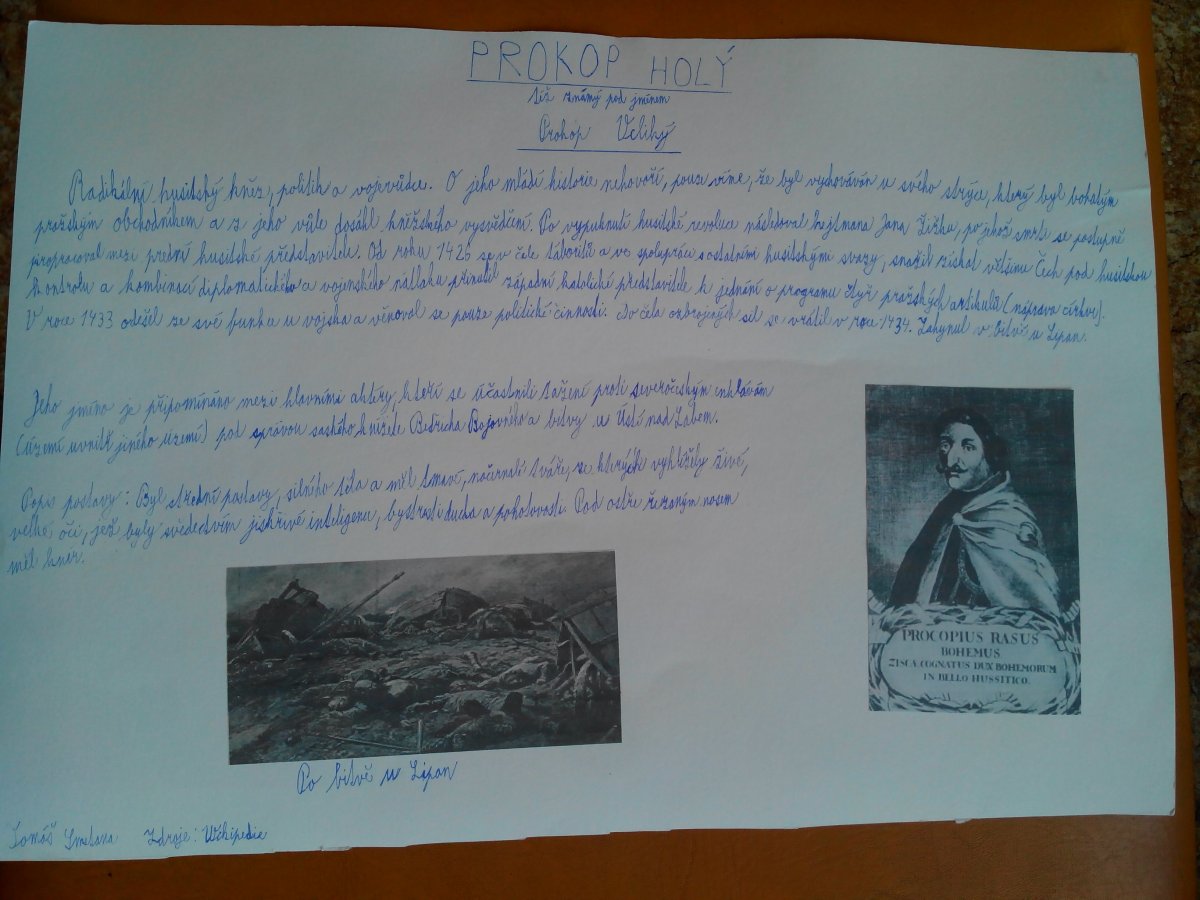 PROKOP HOLÝ
též známý pod jménem
Prokop Veliký
Radikální husitský kněz, politik a vojevůdce. O jeho mládí historie nehovoří, pouze víme, že byl vychováván u svého strýce, který byl bohatým
pražským obchodníkem a z jeho vůle dosáhl kněžského vysvěcení. Po vypuknutí husitské revoluce následoval hejtmana Jana Žižku, po jehož smrti se postupně
propracoval mezi přední husitské představitele. Od roku 1426 se v čele táboritů a ve spolupráce s ostatními husitským svazy, snažil získat většinu Čech pod husitskou
kontrolu a kombinací diplomatického a vojenského nátlaku přinutil západní katolické představitele k jednání o programu čtyř pražských artikulů (náprava církve).
V roce 1433 odešel ze své funkce u vojska a věnoval se pouze politické činnosti. Do čela ozbrojených sil se vrátil v roce 1434. Zahynul v bitvě u Lipan.
Jeho jméno je připomínáno mezi hlavními aktéry, kteří se účastnili tažení proti severočeským enklávám
(území uvnitř jiného území) pod správou saského knížete Bedřicha Bojovného a bitvy u Ústí nad Labem.
Popis postavy: Byl střední postavy, silného těla a měl tmavé, načernalé tváře, ze kterých vyhlížely živé,
velké oči, jež byly svědectvím jiskřivé inteligence, bystrosti ducha a pohotovosti. Pod ostře řezaným nosem
měl knír.
PROCOPIUS RASUS
BOHEMUS
ZISCÆ COGNATUS DUX BOHEMORUM
IN BELLO HUSSITICO.
Po bitvě u Lipan
Tomáš Smetana Zdroje: Wikipedie